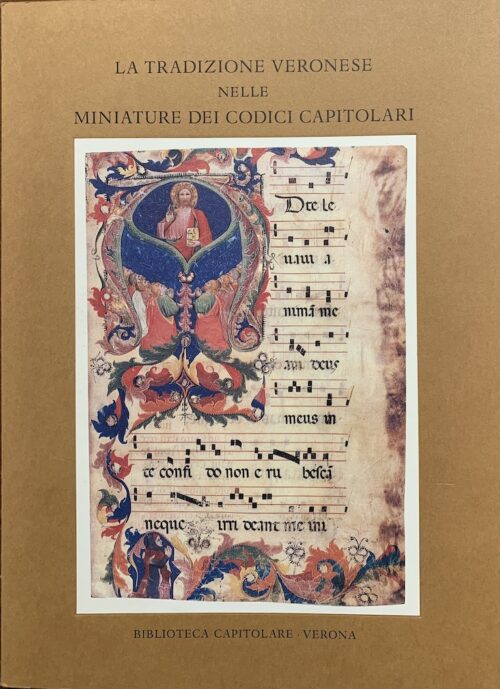 LA TRADIZIONE VERONESE
NELLE
MINIATURE DEI CODICI CAPITOLARI
Dte le
uaui a
nimā me
am deus
meus in
te confi do non e ru bescā
neque irri deant me ini
BIBLIOTECA CAPITOLARE · VERONA